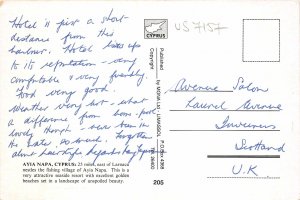 Hotel is just a short
distance from this
harbour. Hotel lives up
to its reputation - very
comfortable & very friendly.
Food very good.
Weather very hot - what
a difference from home. Just
lovely though - have been in
the water so much. Forgotten
about
AYIA NAPA, CYPRUS: 25 miles east of Larnaca
nestles the fishing village of Ayia Napa. This is a
very attractive seaside resort with excellent golden
beaches set in a landscape of unspoiled beauty.
CYPRUS
Published
by
LIMASSOL
205
US 7157
Avenue Salon
Laurel Avenue
Inverness
Scotland
U.K